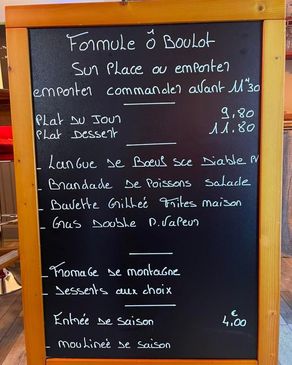 Formule Ô Boulot
Sur Place ou emporter
emporter commander avant 11H30
Plat du Jour 9,80
Plat Dessert 11.80
- Langue de Boeuf Sce Diable PV
- Brandade de Poissons Salade
- Bavette Grillée Frites maison
- Gras Double P.Vapeur
- Fromage de montagne
- Desserts aux choix
Entrée de saison 4,00€
- moulinée de saison